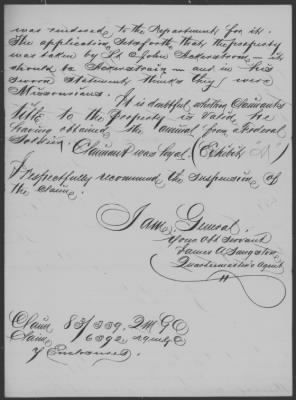 was rendered to the Department for it.
The application, sets forth, that the property
was taken by Lt John Ackerstrom — it
should be Ackerstraig — and in his
sworn statement, thinks they were
Missourians.
It is doubtful whether Claimant's
title to the property is valid he
having obtained the animal from a Federal
Soldier. Claimant was loyal. (Exhibit "A")
I respectfully recommend the suspension of
the claim.
I am, General,
Your Obt Servant
James A Sangston
Quartermaster's Agent
Claim 83/339, QMGO
Claim 6392
7 Enclosures.